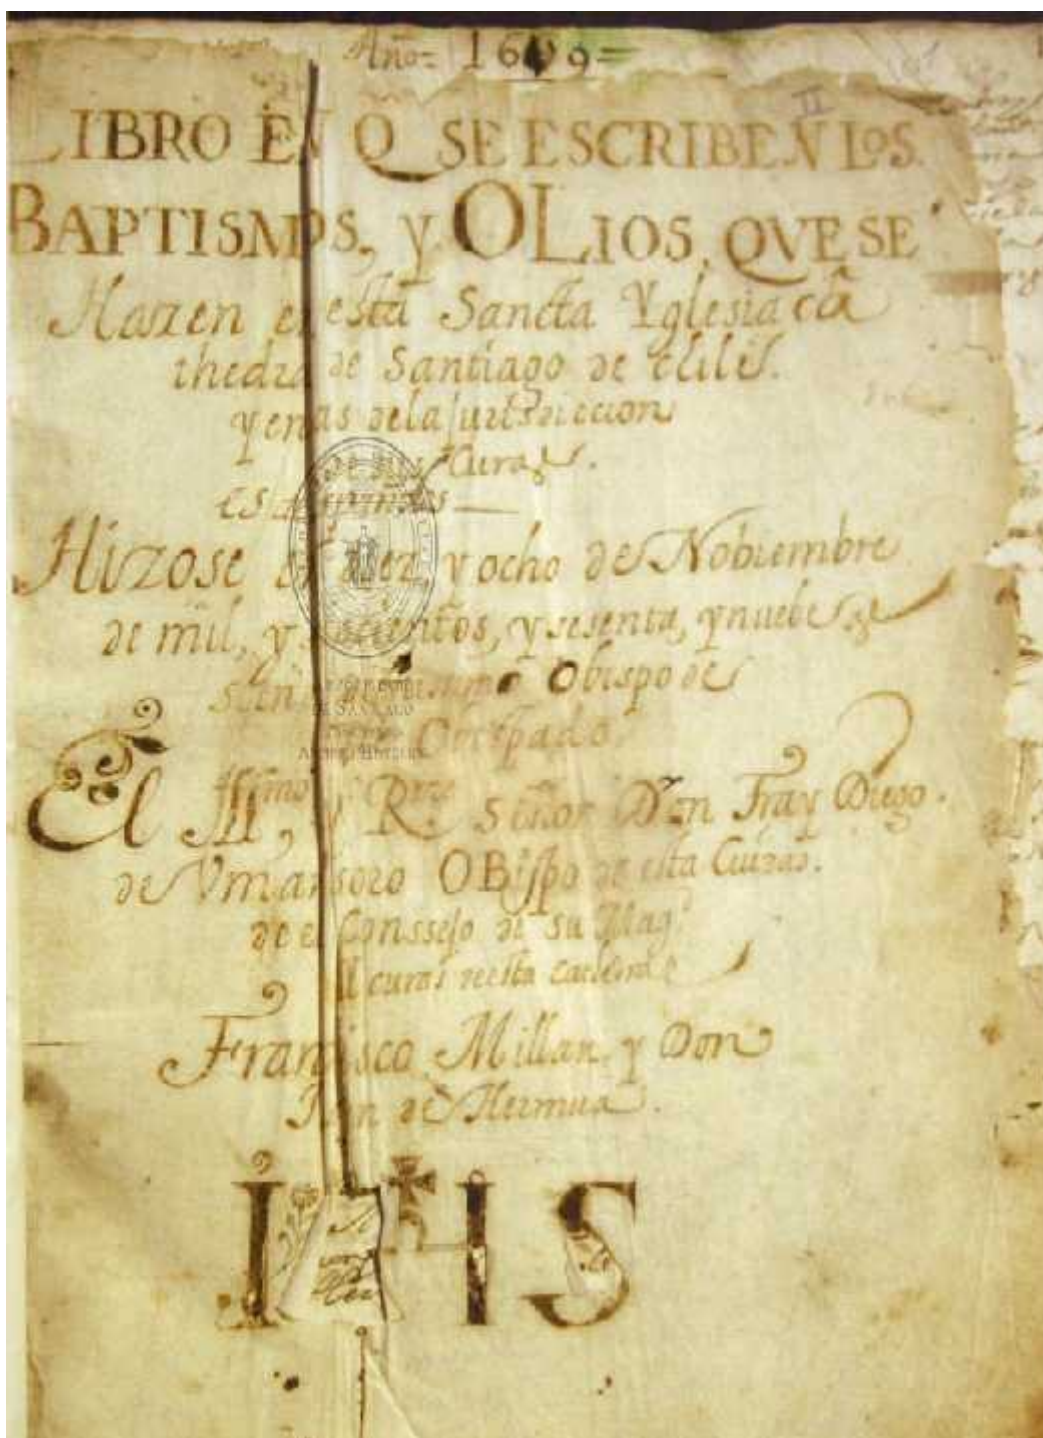 Año= 1669=
LIBRO EN Q SE ESCRIBEN LOS
BAPTISMOS, y OLIOS, QVE SE
Hazen en esta Sancta Yglesia ca
thedra de Santiago de chile.
y en as de la jurisdiccion
de sus Curas.
españoles
Hizose en diez, y ocho de Nobiembre
de mil, y seiscientos, y sesenta, y nuebe
siendo Obispo de
Obispado
El Illmo y Rmo Señor Don Fray Diego.
de Vmansoro OBispo de esta Ciudad.
de el Conssejo de su Magd.
curas de esta catedral
Francisco Millan, y Don
Juan de Hermua.
IHS